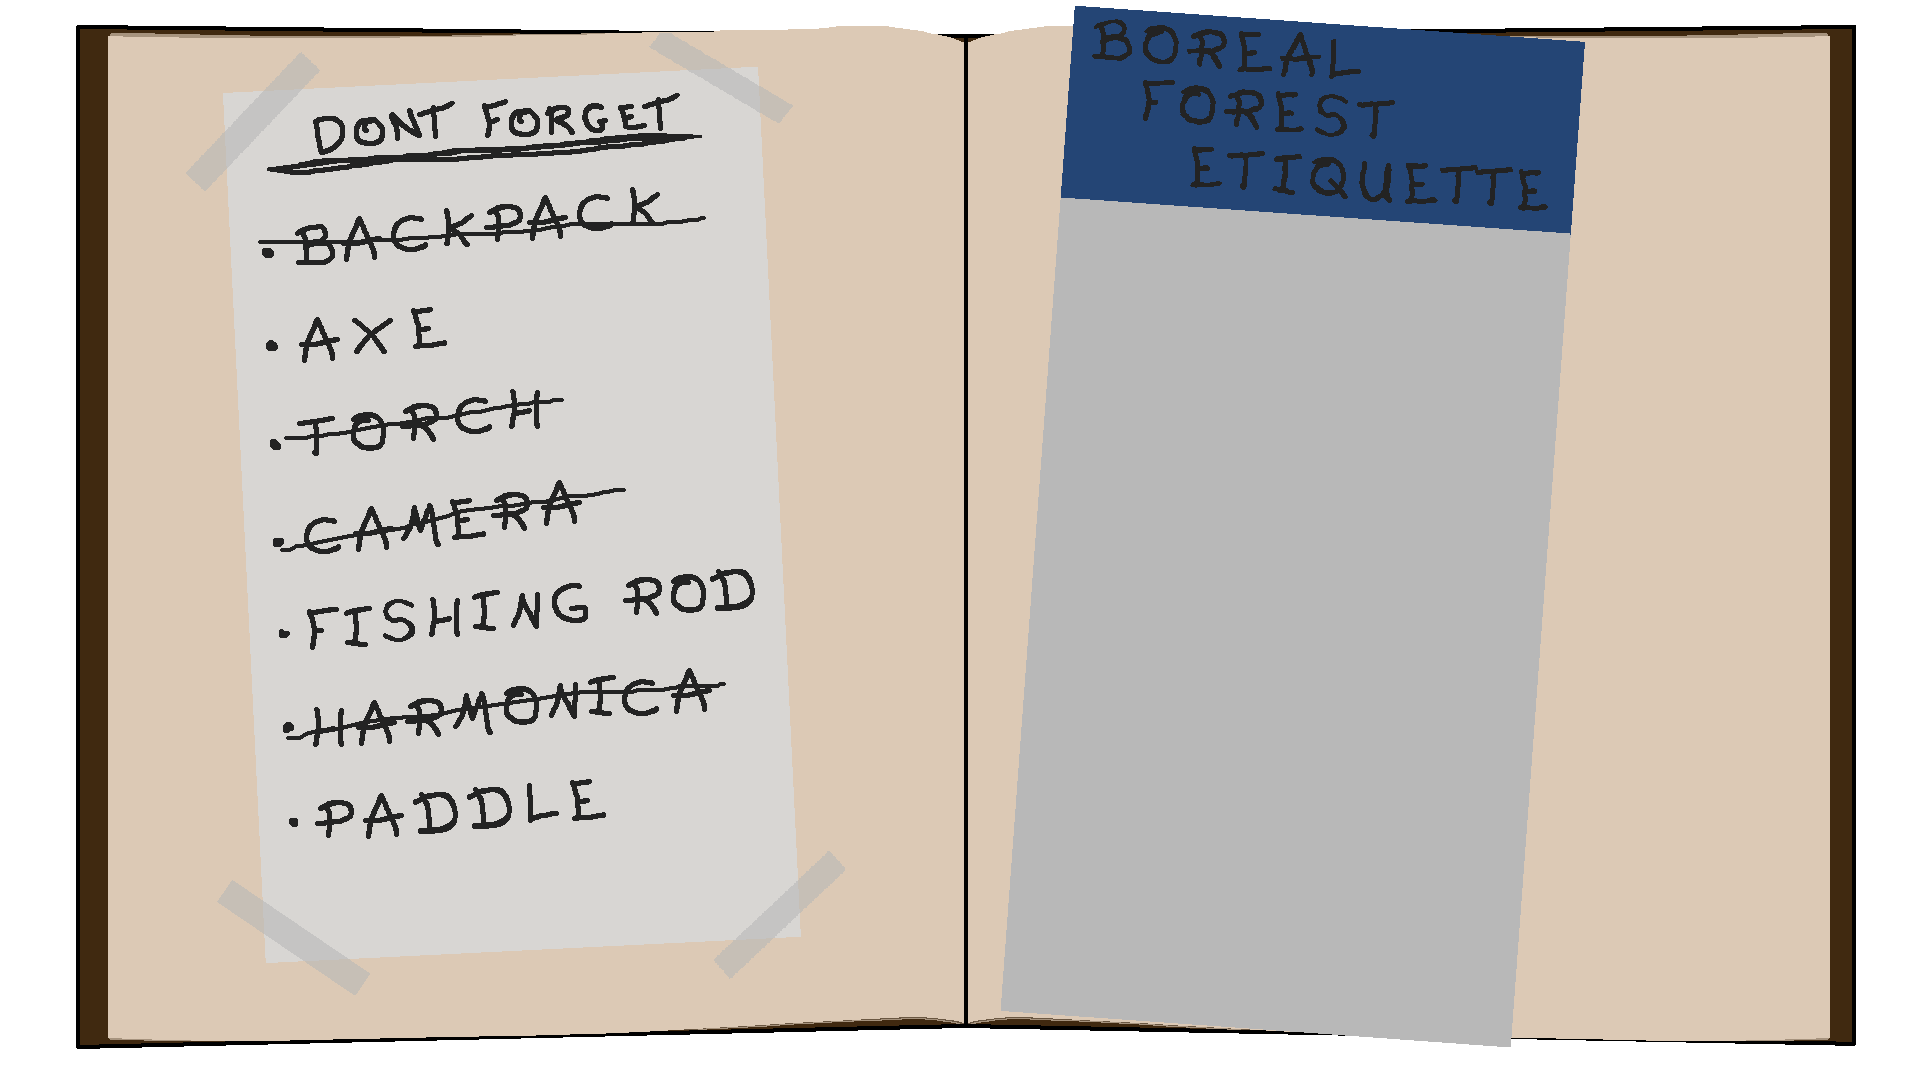 DONT FORGET
• BACKPACK
• AXE
• TORCH
• CAMERA
• FISHING ROD
• HARMONICA
• PADDLE
BOREAL
FOREST
ETIQUETTE